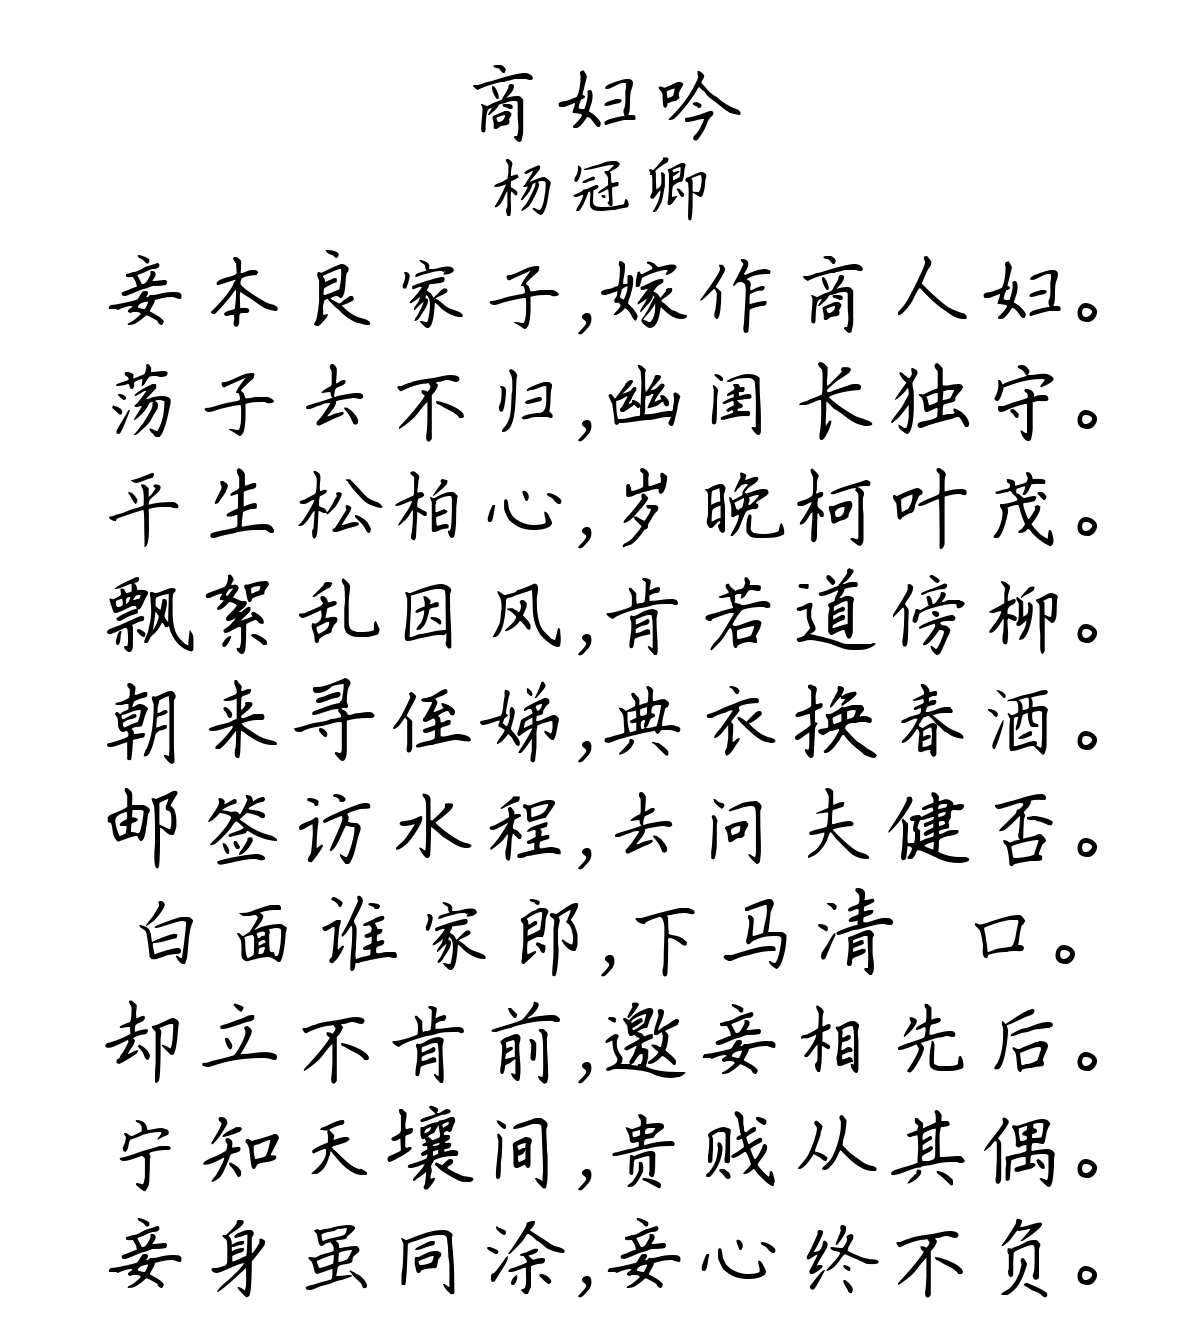 商妇吟
杨冠卿
妾本良家子,嫁作商人妇。
荡子去不归,幽闺长独守。
平生松柏心,岁晚柯叶茂。
飘絮乱因风,肯若道傍柳。
朝来寻侄娣,典衣换春酒。
邮签访水程,去问夫健否。
白面谁家郎,下马清 口。
却立不肯前,邀妾相先后。
宁知天壤间,贵贱从其偶。
妾身虽同涂,妾心终不负。